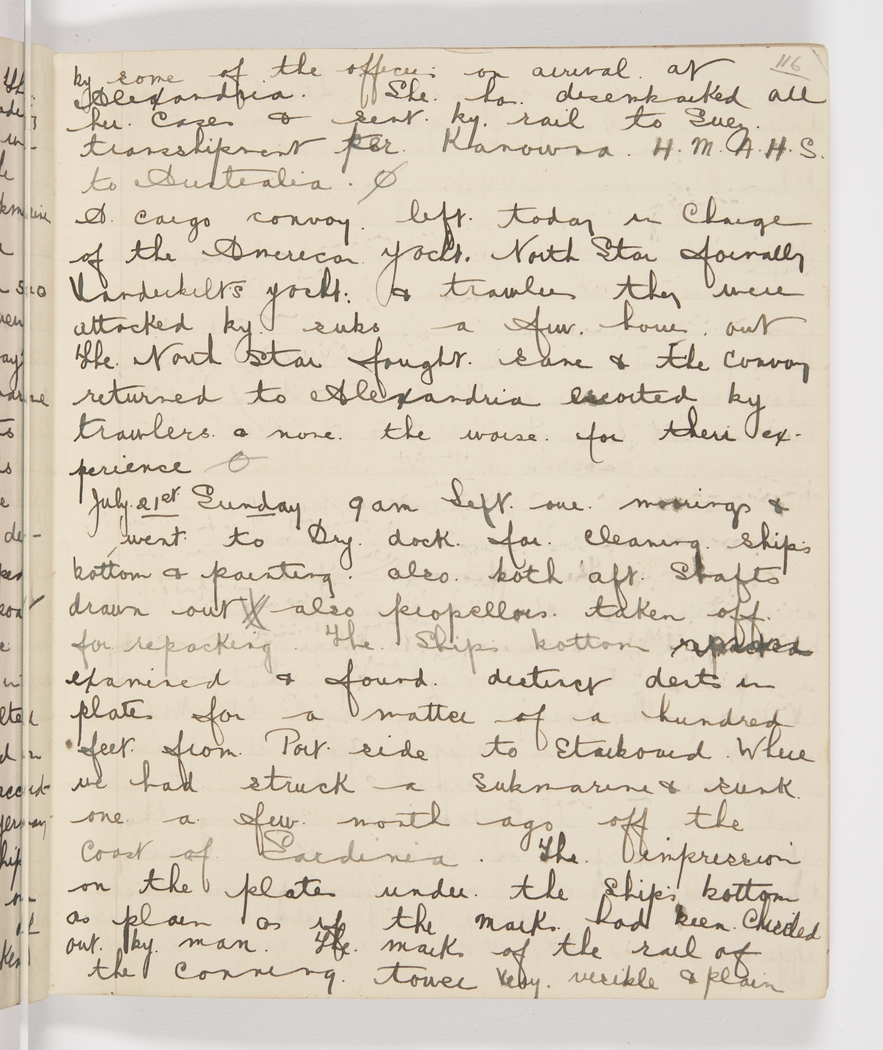 116
by some of the officers on arrival at
Alexandria. She has disembarked all
her cases & sent by rail to Suez.
transshipment per Kanowna. H.M.A.H.S.
to Australia.
A cargo convoy left today in Charge
of the American yacht. North Star formally
Vanderbilts yacht. & trawlers they were
attacked by subs a few hours out
The North Star fought. Sane & the convoy
returned to Alexandria escorted by
trawlers. & none the worse for their ex-
perience
July 21st Sunday 9 am Left our moorings &
went to Dry dock for cleaning ships
bottom & painting. also both aft. Shafts
drawn out also propellors taken off
for repacking. The Ships bottom
examined & found distinct dents in
plates for a matter of a hundred
feet from Port side to Starboard. Where
we had struck a Submarine & sunk
one a few month ago off the
Coast of Sardinia. The impression
on the plates under the Ships bottom
as plain as if the marks had been Chiseled
out by man. The marks of the rail of
the conning tower very visible & plain